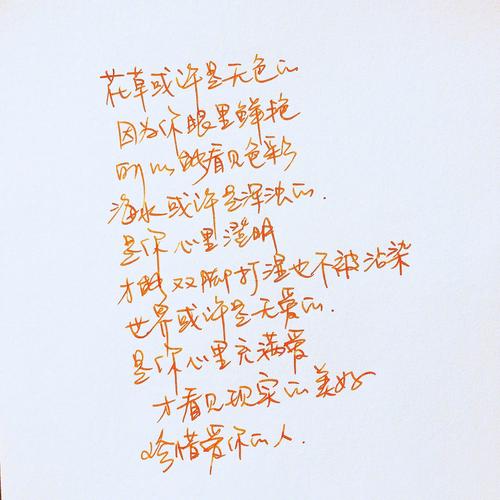 花草或许是无色的
因为你眼里鲜艳
所以能看见色彩
海水或许是浑浊的.
是你心里澄明
才能双脚打湿也不被沾染
世界或许是无爱的.
是你心里充满爱
才看见现实的美好
珍惜爱你的人.